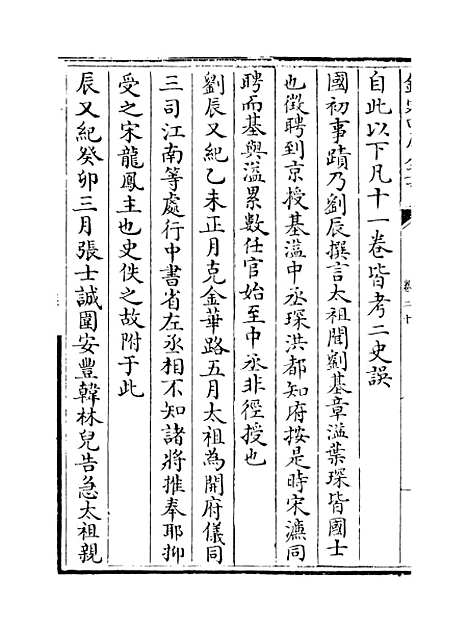 自此以下凡十一卷皆考二史誤
國初事蹟乃劉辰撰言太祖聞劉基章溢葉琛皆國士
也徵聘到京授基溢中丞琛洪都知府按是時宋濂同
聘而基與溢累數任官始至中丞非徑授也
劉辰又紀乙未正月克金華路五月太祖為開府儀同
三司江南等處行中書省左丞相不知諸將推奉耶抑
受之宋龍鳳主也史佚之故附于此
辰又紀癸卯三月張士誠圍安豐韓林兒告急太祖親